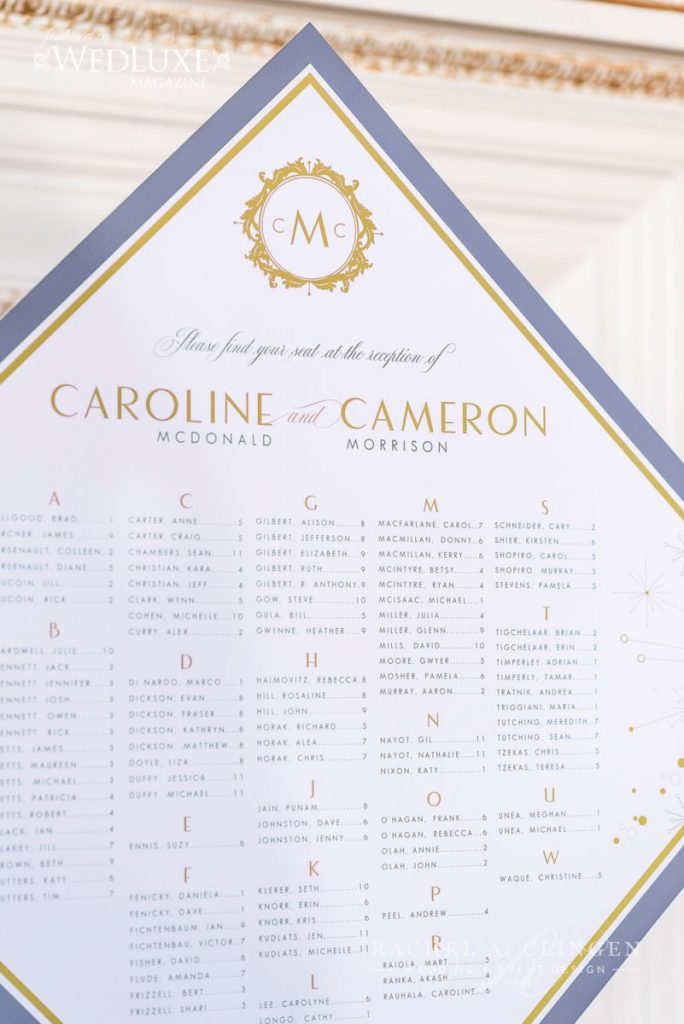 WEDLUXE
MAGAZINE
C M C
Please find your seat at the reception of
CAROLINE and CAMERON
MCDONALD MORRISON
A
BRAD..........1
JAMES..........9
COLLEEN..2
DIANE......5
JILL..........2
RICK..........2
B
JULIE.......10
JACK........3
JENNIFER...3
JOSH........3
OWEN.......3
RICK.........3
JAMES..........3
MAUREEN.....3
MICHAEL......4
PATRICIA......4
ROBERT........4
IAN............4
JILL...........7
BETH..........9
KATY..........6
TIM...........7
C
CARTER, ANNE...........5
CARTER, CRAIG..........5
CHAMBERS, SEAN......11
CHRISTIAN, KARA.......4
CHRISTIAN, JEFF........4
CLARK, WYNN...........5
COHEN, MICHELLE.....10
CURRY, ALEX............2
D
DI NARDO, MARCO.....1
DICKSON, EVAN.........8
DICKSON, FRASER......8
DICKSON, KATHRYN....8
DICKSON, MATTHEW..8
DOYLE, LIZA.............8
DUFFY, JESSICA........11
DUFFY, MICHAEL.......11
E
ENNIS, SUZY............6
F
FENICKY, DANIELA......1
FENICKY, DAVE.........1
FICHTENBAUM, IAN....9
FICHTENBAU, VICTOR..7
FISHER, DAVID..........6
FLUDE, AMANDA........7
FRIZZELL, BERT..........3
FRIZZELL, SHARI........3
G
GILBERT, ALISON.......8
GILBERT, JEFFERSON...8
GILBERT, ELIZABETH....9
GILBERT, RUTH.........9
GILBERT, R. ANTHONY.9
GOW, STEVE...........10
GULA, BILL..............5
GWYNNE, HEATHER...9
H
HAIMOVITZ, REBECCA.8
HILL, ROSALINE........8
HILL, JOHN.............9
HORAK, RICHARD......5
HORAK, ALEA...........7
HORAK, CHRIS..........7
J
JAIN, PUNAM...........8
JOHNSTON, DAVE.....6
JOHNSTON, JENNY....6
K
KLERER, SETH...........10
KNORR, ERIN...........6
KNORR, KRIS............6
KUDLATS, JEN..........11
KUDLATS, MICHELLE...11
L
LEE, CAROLYNE.........6
LONGO, CATHY........1
M
MACFARLANE, CAROL.7
MACMILLAN, DONNY.6
MACMILLAN, KERRY...6
MCINTYRE, BETSY......4
MCINTYRE, RYAN.......4
MCISAAC, MICHAEL....1
MILLER, JULIA...........4
MILLER, GLENN.........9
MILLS, DAVID..........10
MOORE, GWYER.......5
MOSHER, PAMELA.....6
MURRAY, AARON......2
N
NAYOT, GIL............11
NAYOT, NATHALIE.....11
NIXON, KATY...........1
O
O'HAGAN, FRANK.....6
O'HAGAN, REBECCA..6
OLAH, ANNIE..........2
OLAH, JOHN...........2
P
PEEL, ANDREW.........4
R
RAIGLA, MART..........5
RANKA, AKASH.........4
RAUHALA, CAROLINE..6
S
SCHNEIDER, CARY.....2
SHIER, KIRSTEN........6
SHOPIRO, CAROL......5
SHOPIRO, MURRAY....5
STEVENS, PAMELA.....5
T
TIGCHELAAR, BRIAN...2
TIGCHELAAR, ERIN....2
TIMPERLEY, ADRIAN...1
TIMPERLY, TAMAR.....1
TRATNIK, ANDREA.....1
TRIGGIANI, MARIA.....1
TUTCHING, MEREDITH.7
TUTCHING, SEAN......7
TZEKAS, CHRIS.........5
TZEKAS, TERESA........5
U
UNEA, MEGHAN.......1
UNEA, MICHAEL........1
W
WAQUE, CHRISTINE...5
RACHEL A. CLINGEN
EVENT DESIGN